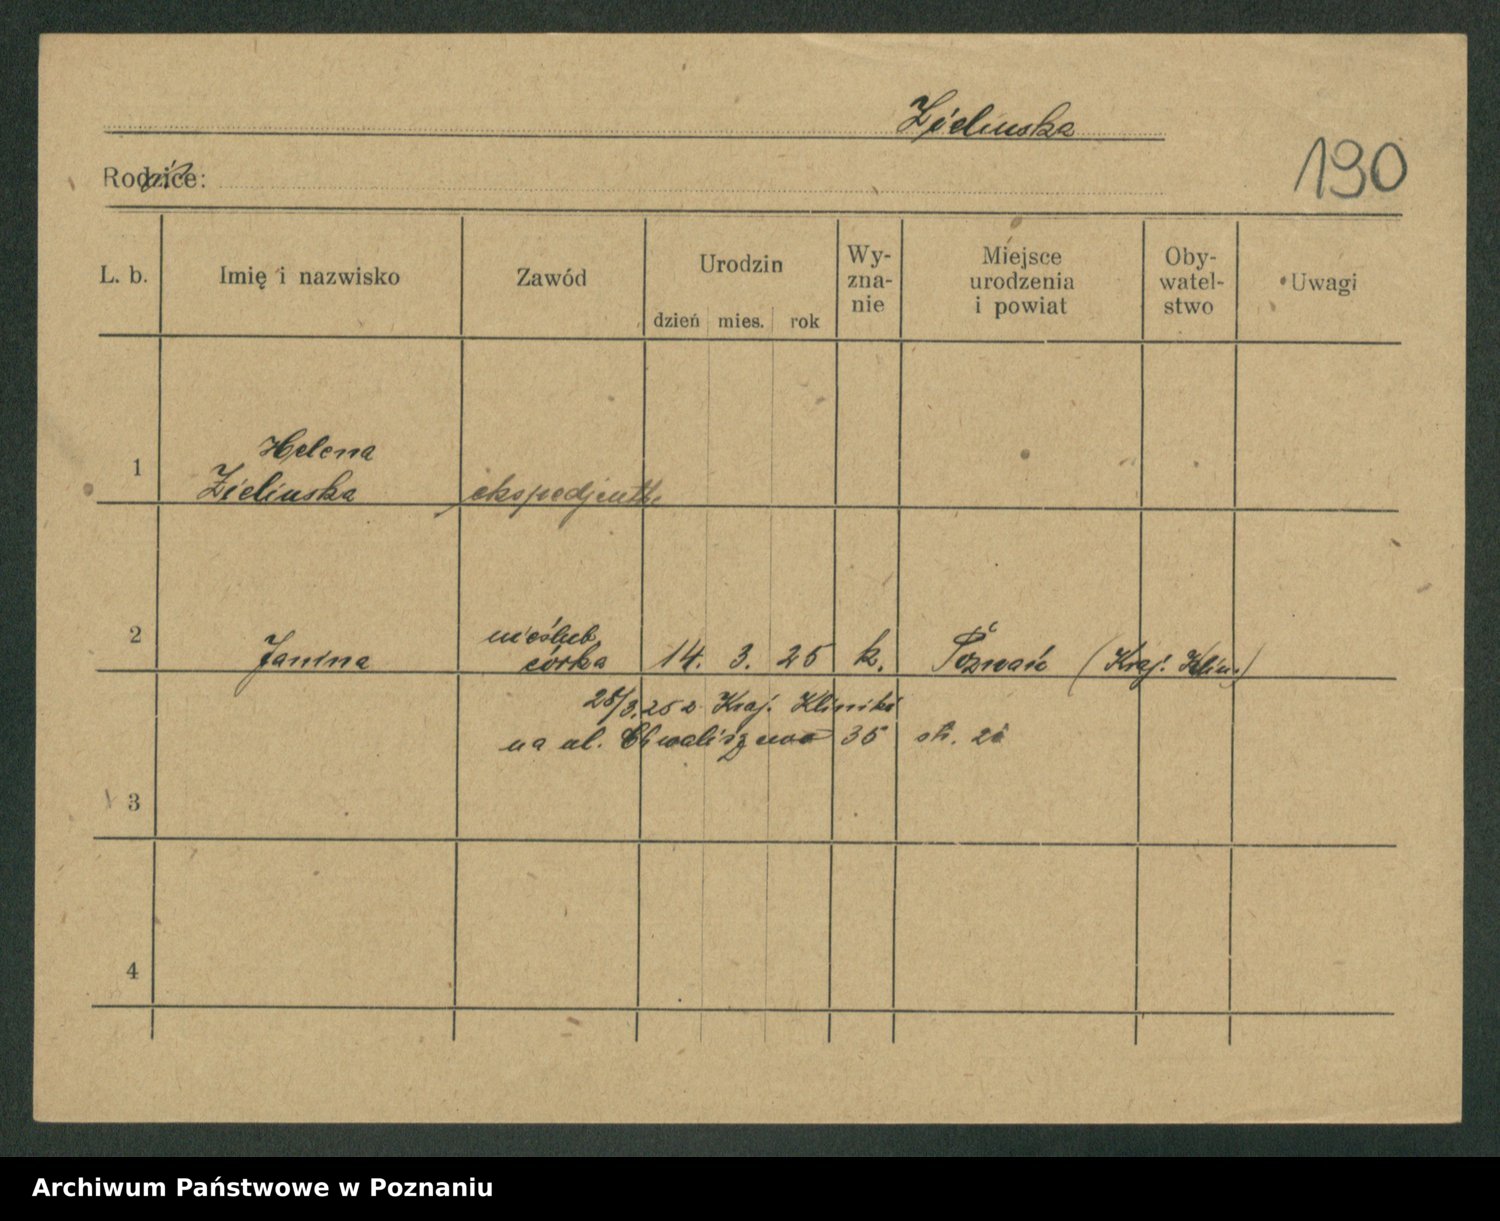 Zielinska
190
Rodzice:
L. b. Imię i nazwisko Zawód Urodzin dzień mies. rok Wy-zna-nie Miejsce urodzenia i powiat Oby-watel-stwo Uwagi
Helena
1 Zielinska ekspedjentka
nieślub.
2 Janina córka 14. 3. 25 k. Poznań (Kraj. Klin.)
25/3.25 z Kraj. Kliniki
na ul. Chwaliszewo 35 str. 26
3
4
Archiwum Państwowe w Poznaniu